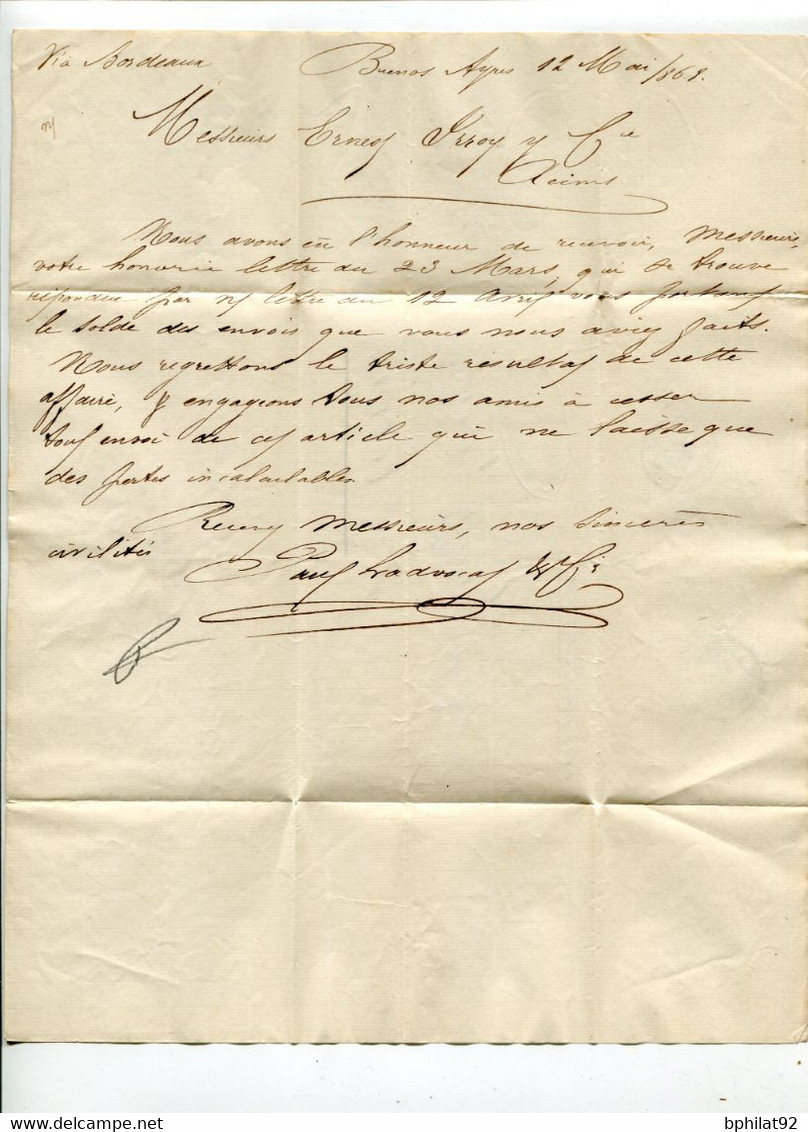 Via Bordeaux Buenos Ayres 12 Mai /868.
Messieurs Ernest Irroy y Cie
Reims
Nous avons eû l'honneur de recevoir, Messieurs,
votre honorée lettre du 23 Mars, qui se trouve
répondue par n/ lettre du 12 avril vous portant
le solde des envois que vous nous aviez faits.
Nous regrettons le triste résultat de cette
affaire, & engageons tous nos amis à cesser
tout envoi de cet article qui ne laisse que
des pertes incalculables
Recevez Messieurs, nos sincères
civilités
Paul Ladvocat & Cie
bphilat92